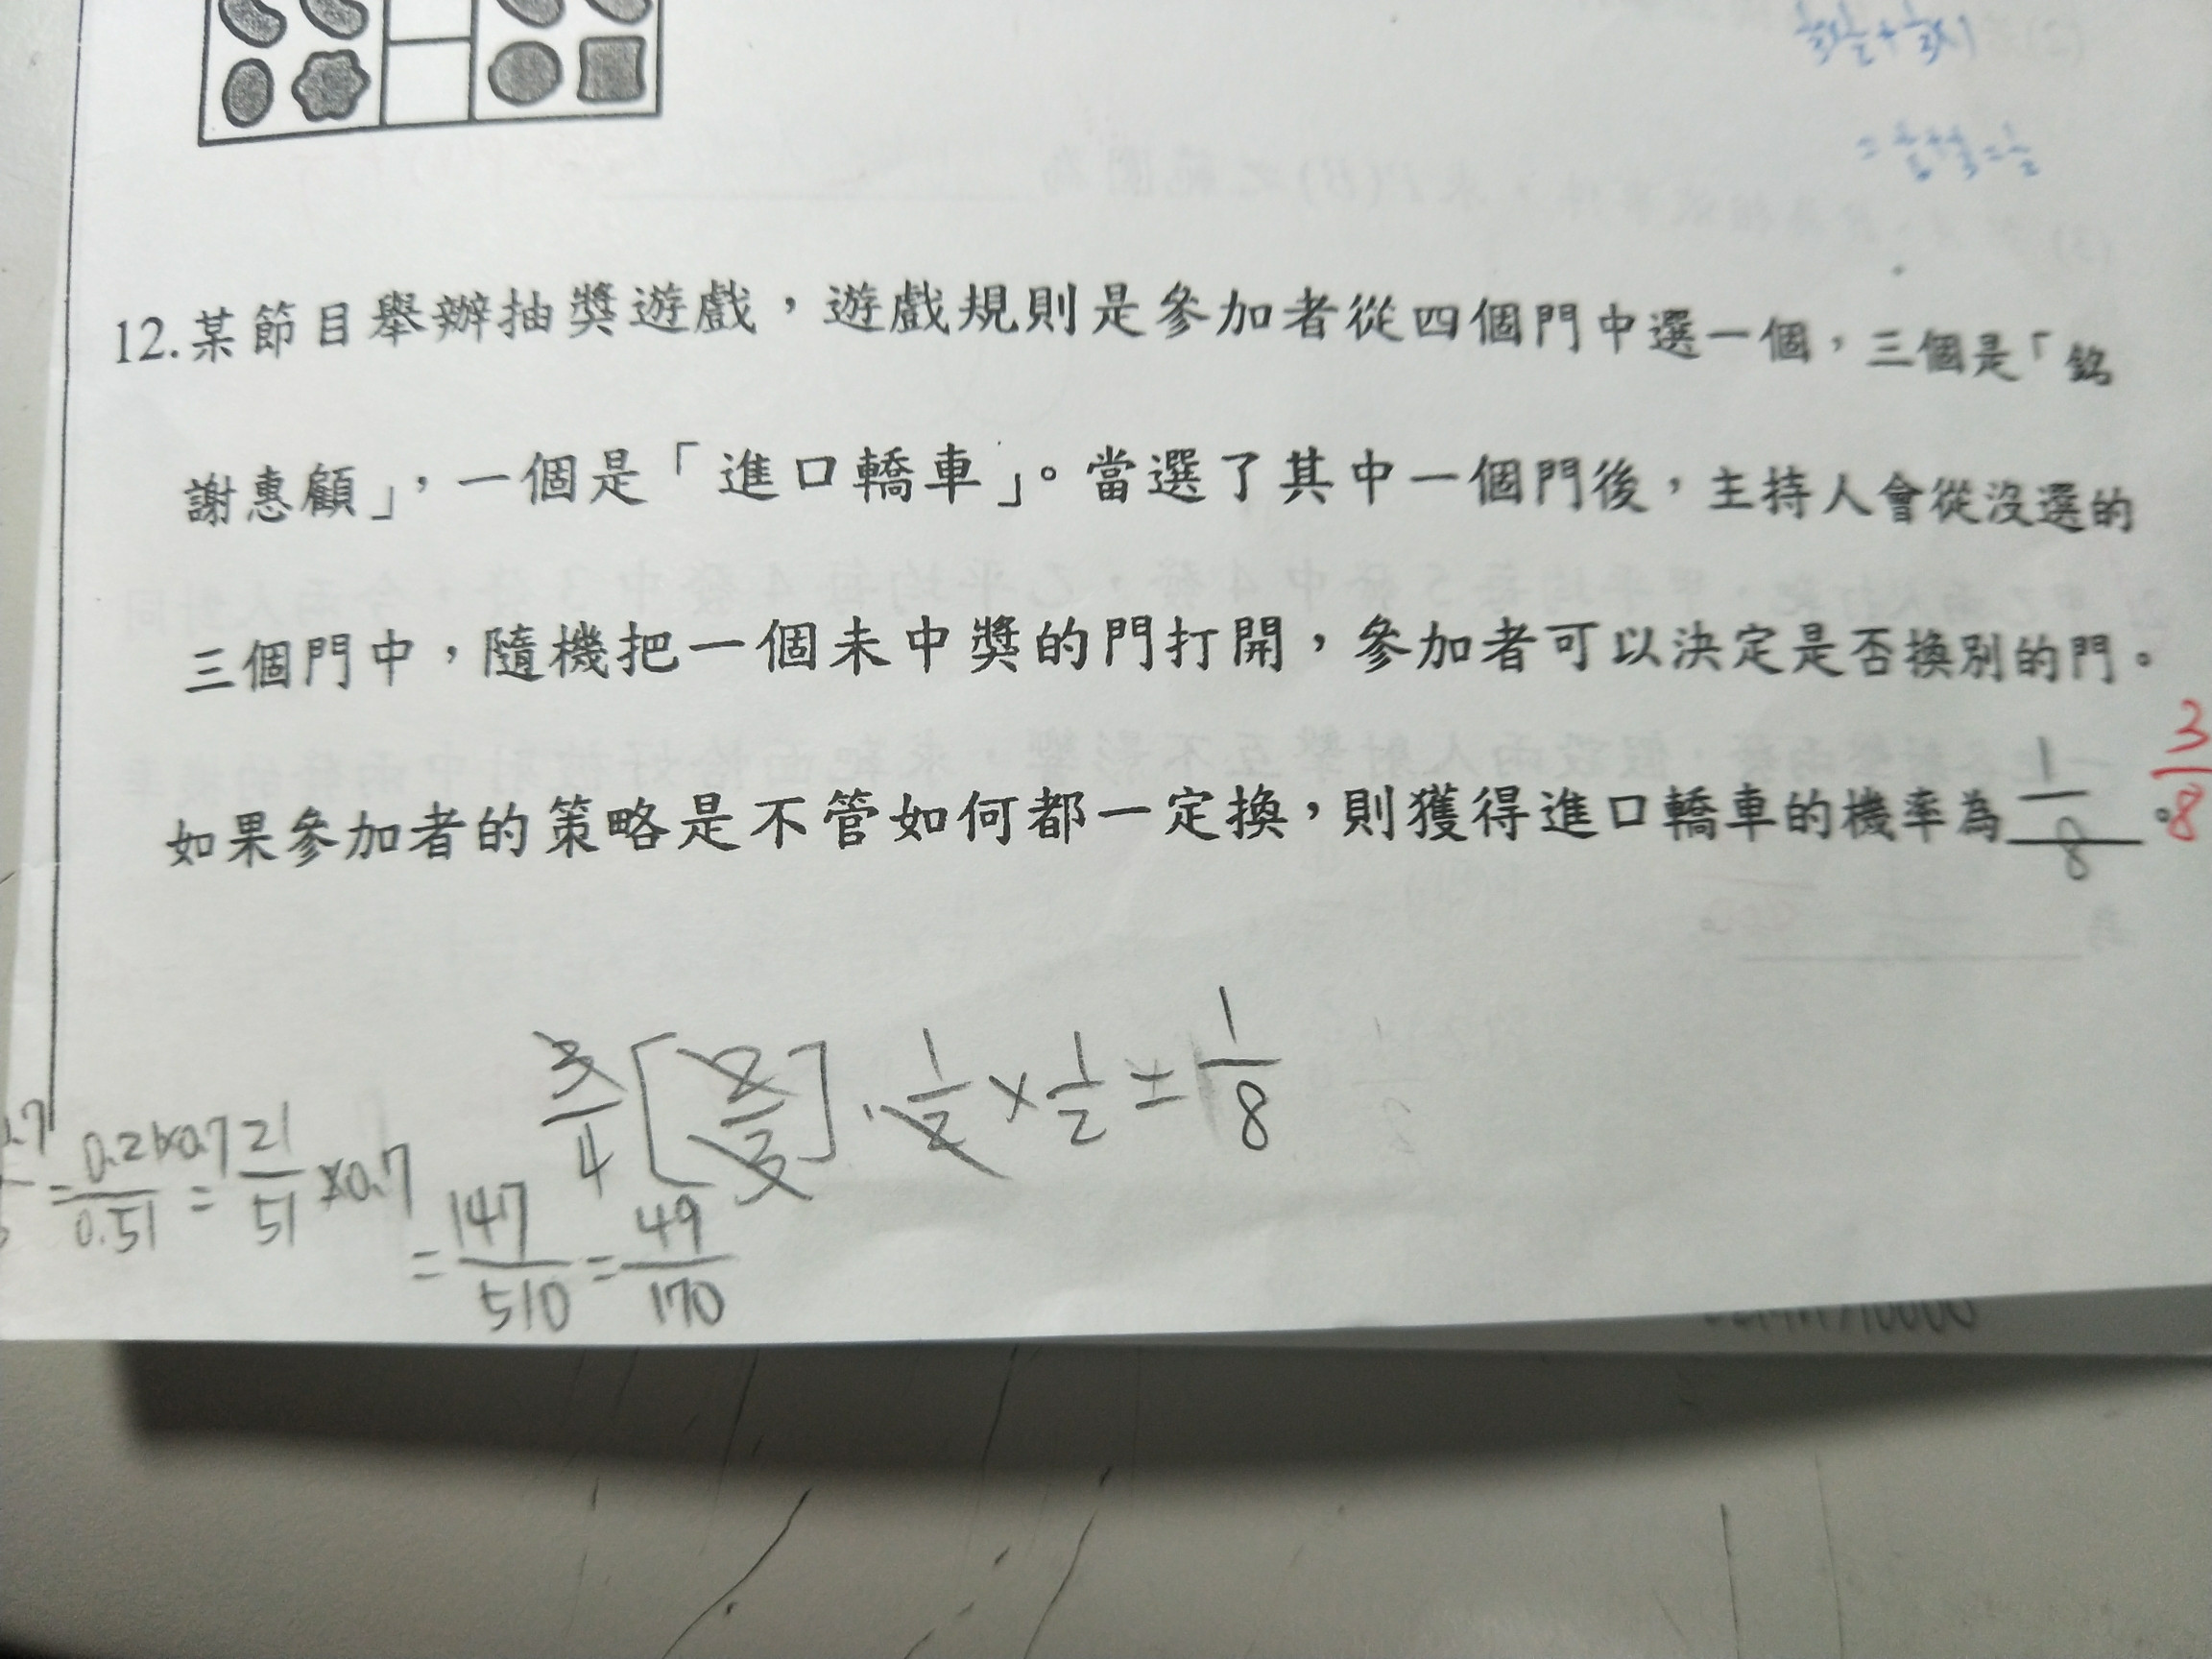 12.某節目舉辦抽獎遊戲，遊戲規則是參加者從四個門中選一個，三個是「銘
謝惠顧」，一個是「進口轎車」。當選了其中一個門後，主持人會從沒選的
三個門中，隨機把一個未中獎的門打開，參加者可以決定是否換別的門。
如果參加者的策略是不管如何都一定換，則獲得進口轎車的機率為 1/8 。 3/8
3/4 [2/3] · 1/2 × 1/2 = 1/8
= 0.21×0.7/0.51 = 21/51 ×0.7
= 147/510 = 49/170